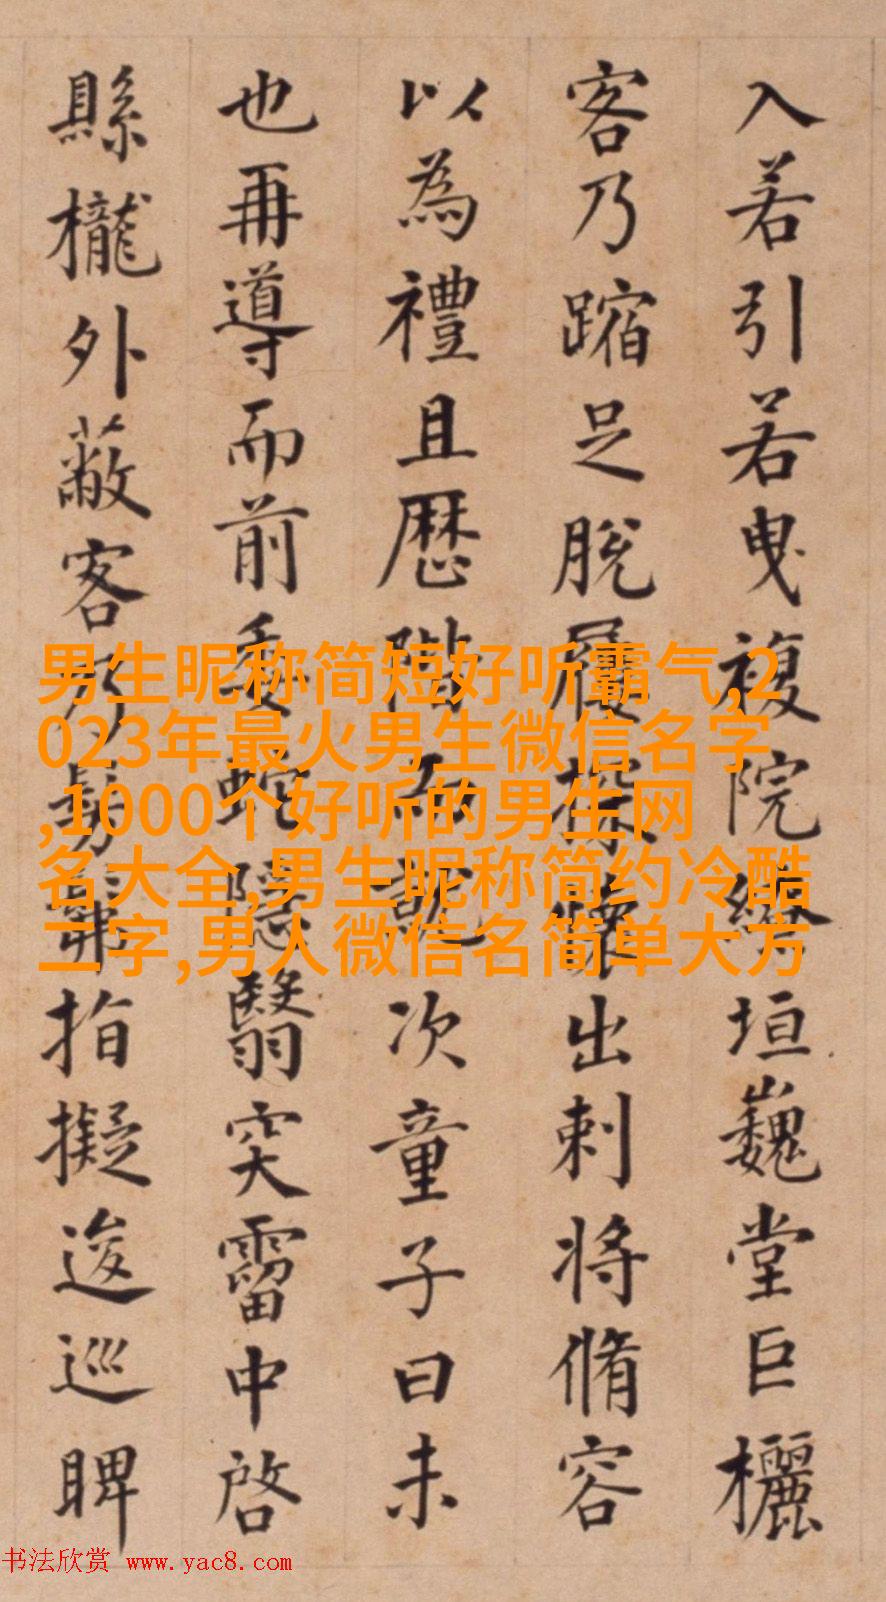 入若引若曳複院繚垣巍堂巨欐
客乃蹜足脫屨探懷出刺將脩容
以為禮且歷階就次童子曰未
也再導而前委蛇隱翳突霤中啓
縣櫳外蔽客乃髣髴指擬逡巡睥
男生昵称简短好听霸气,2
023年最火男生微信名字
,1000个好听的男生网
名大全,男生昵称简约冷酷
二字,男人微信名简单大方
书法欣赏 www.yac8.com